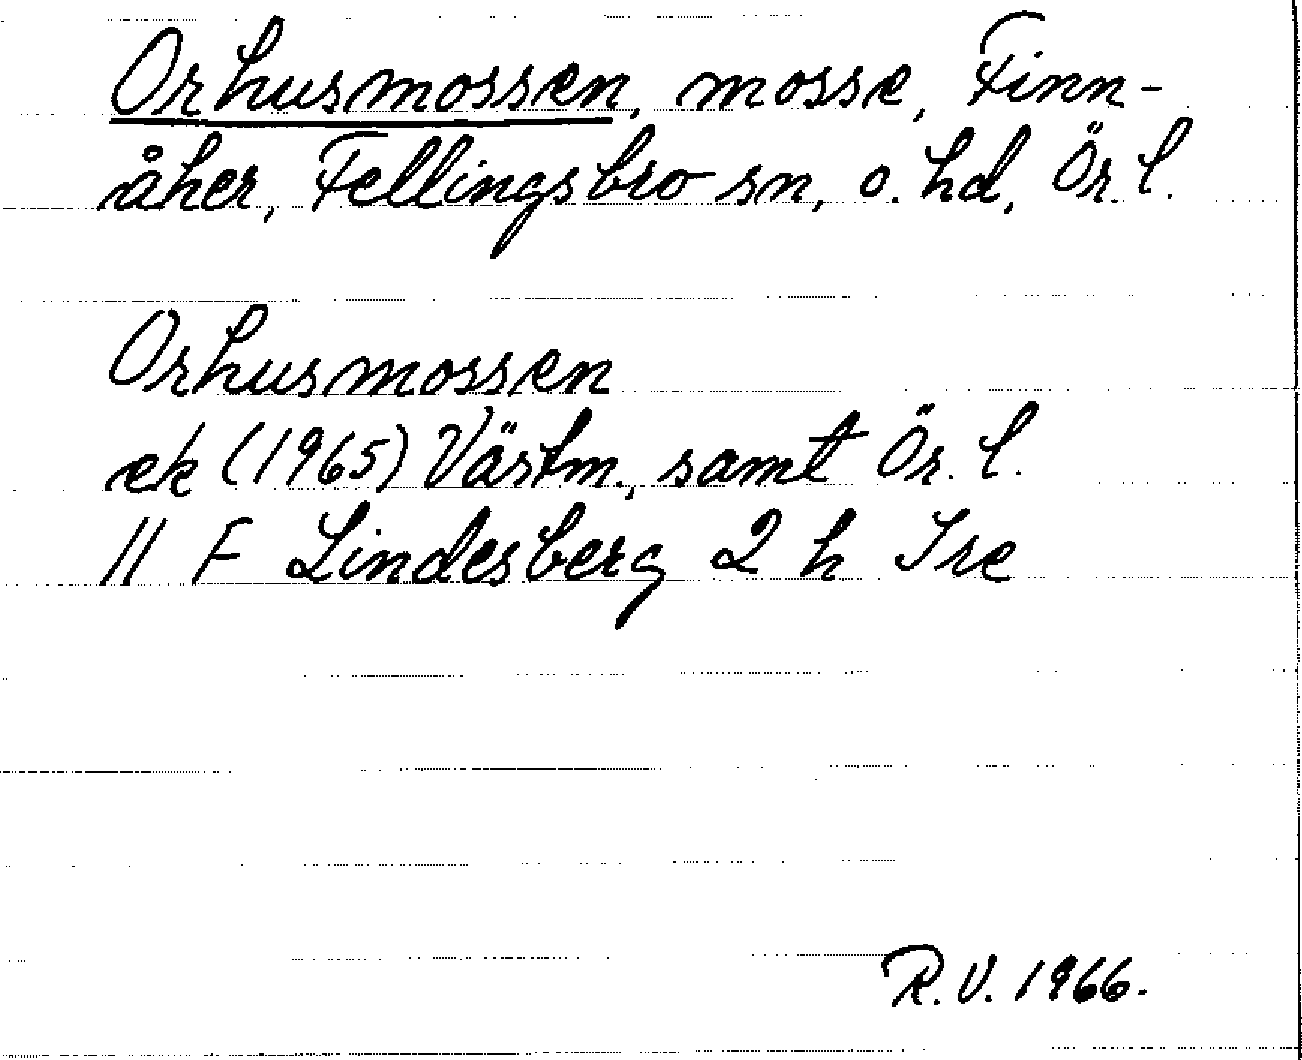 Orhusmossen, mosse, Finn-
åker, Fellingsbro sn, o. hd, Ör. l.
Orhusmossen
ek (1965) Västm., samt Ör. l.
11 F Lindesberg 2 h Tre
R.V. 1966.